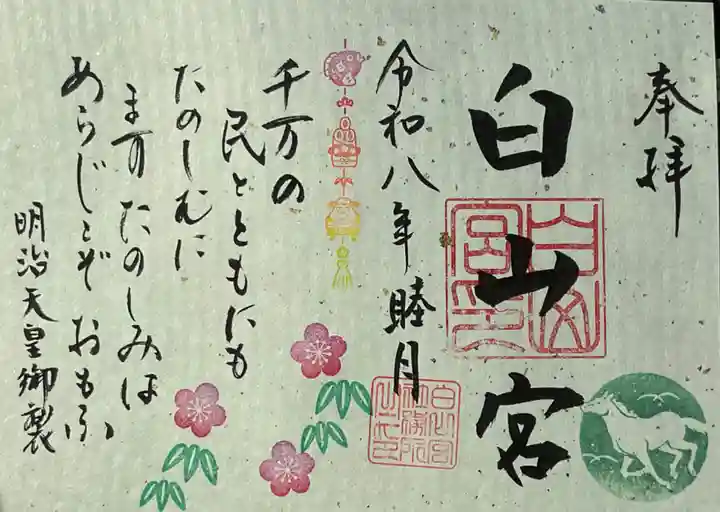 奉拝
白山宮
白山宮印
令和八年睦月
白山宮
社務所
之印
千万の
民とともにも
たのしむに
ますたのしみは
あらじとぞおもふ
明治天皇御製